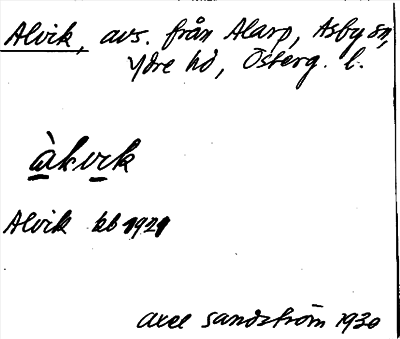 Alvik, avs. från Alarp, Asby sn,
Ydre hd, Österg. l.
àkvik
Alvik kb 1921
Axel Sandström 1930